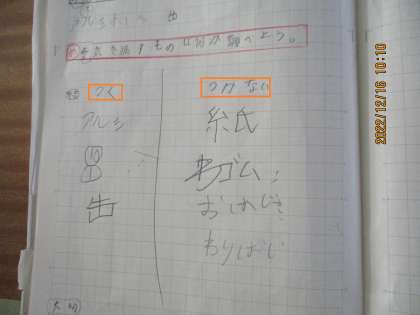 電気を通すものは何か調べよう。
つく つかない
アルミ 紙
10 わゴム
1 おはじき
缶 わりばし
2022/12/16 10:10